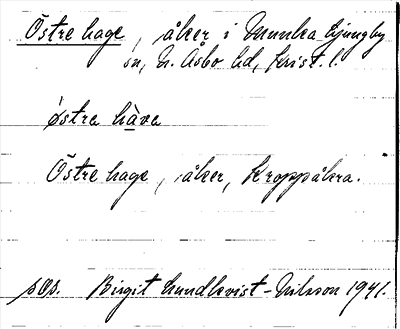 Östre hage, åker i Munka Ljungby
sn, N. Åsbo hd, Krist. l.
östra hàva
Östre hage, åker, Kroppåkra.
sos. Birgit Lundkvist-Nilsson 1941.